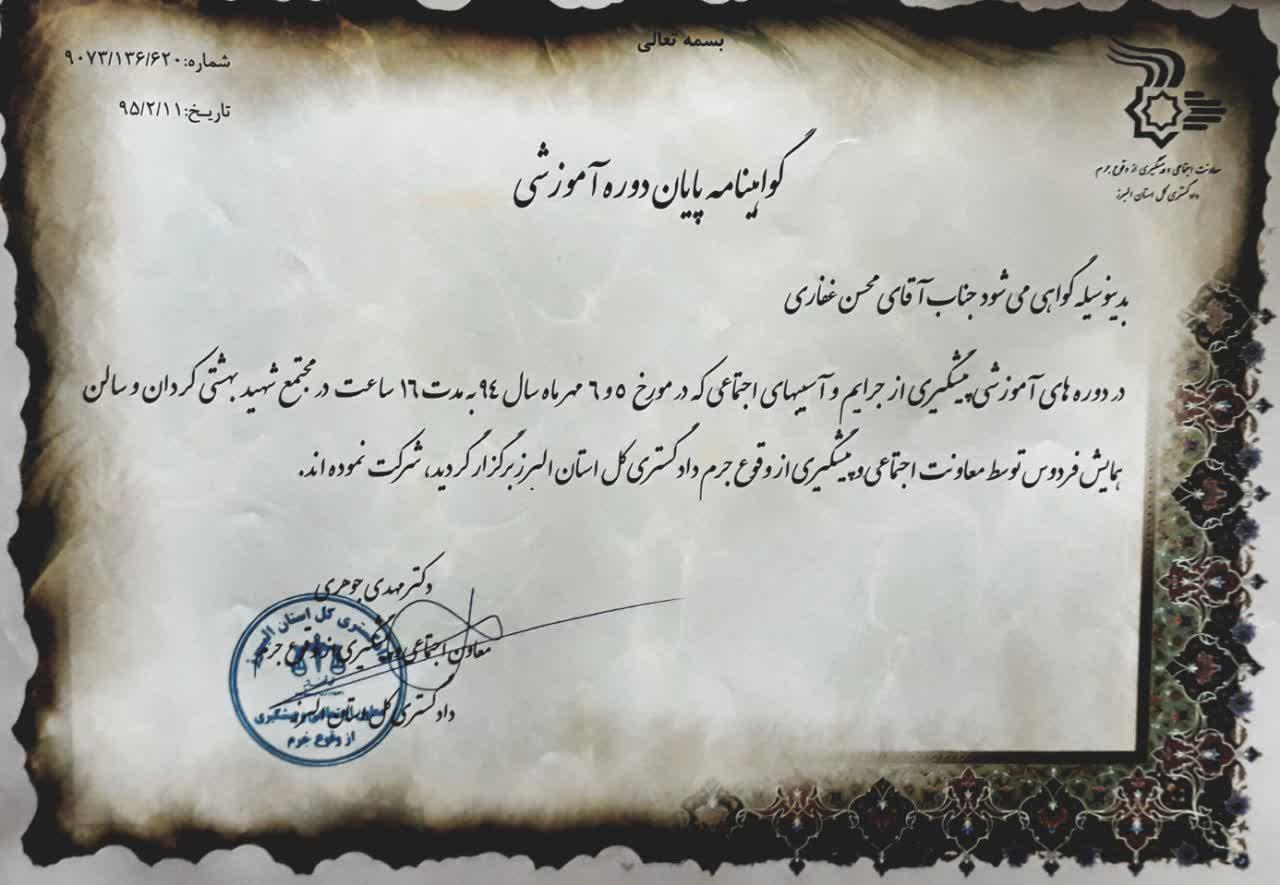 بسمه تعالی
شماره: ۹۰۷۳/۱۳۶/۶۲۰
تاریخ: ۹۵/۲/۱۱
معاونت اجتماعی و پیشگیری از وقوع جرم
دادگستری کل استان البرز
گواهینامه پایان دوره آموزشی
بدینوسیله گواهی می شود جناب آقای محسن غفاری
در دوره های آموزشی پیشگیری از جرایم و آسیبهای اجتماعی که در مورخ ۵ و ۶ مهر ماه سال ۹۴ به مدت ۱۶ ساعت در مجتمع شهید بهشتی کردان و سالن
همایش فردوس توسط معاونت اجتماعی و پیشگیری از وقوع جرم دادگستری کل استان البرز برگزار گردید، شرکت نموده اند.
دکتر مهدی جوهری
معاون اجتماعی و پیشگیری از وقوع جرم
دادگستری کل استان البرز
دادگستری کل استان البرز
معاونت اجتماعی و پیشگیری
از وقوع جرم